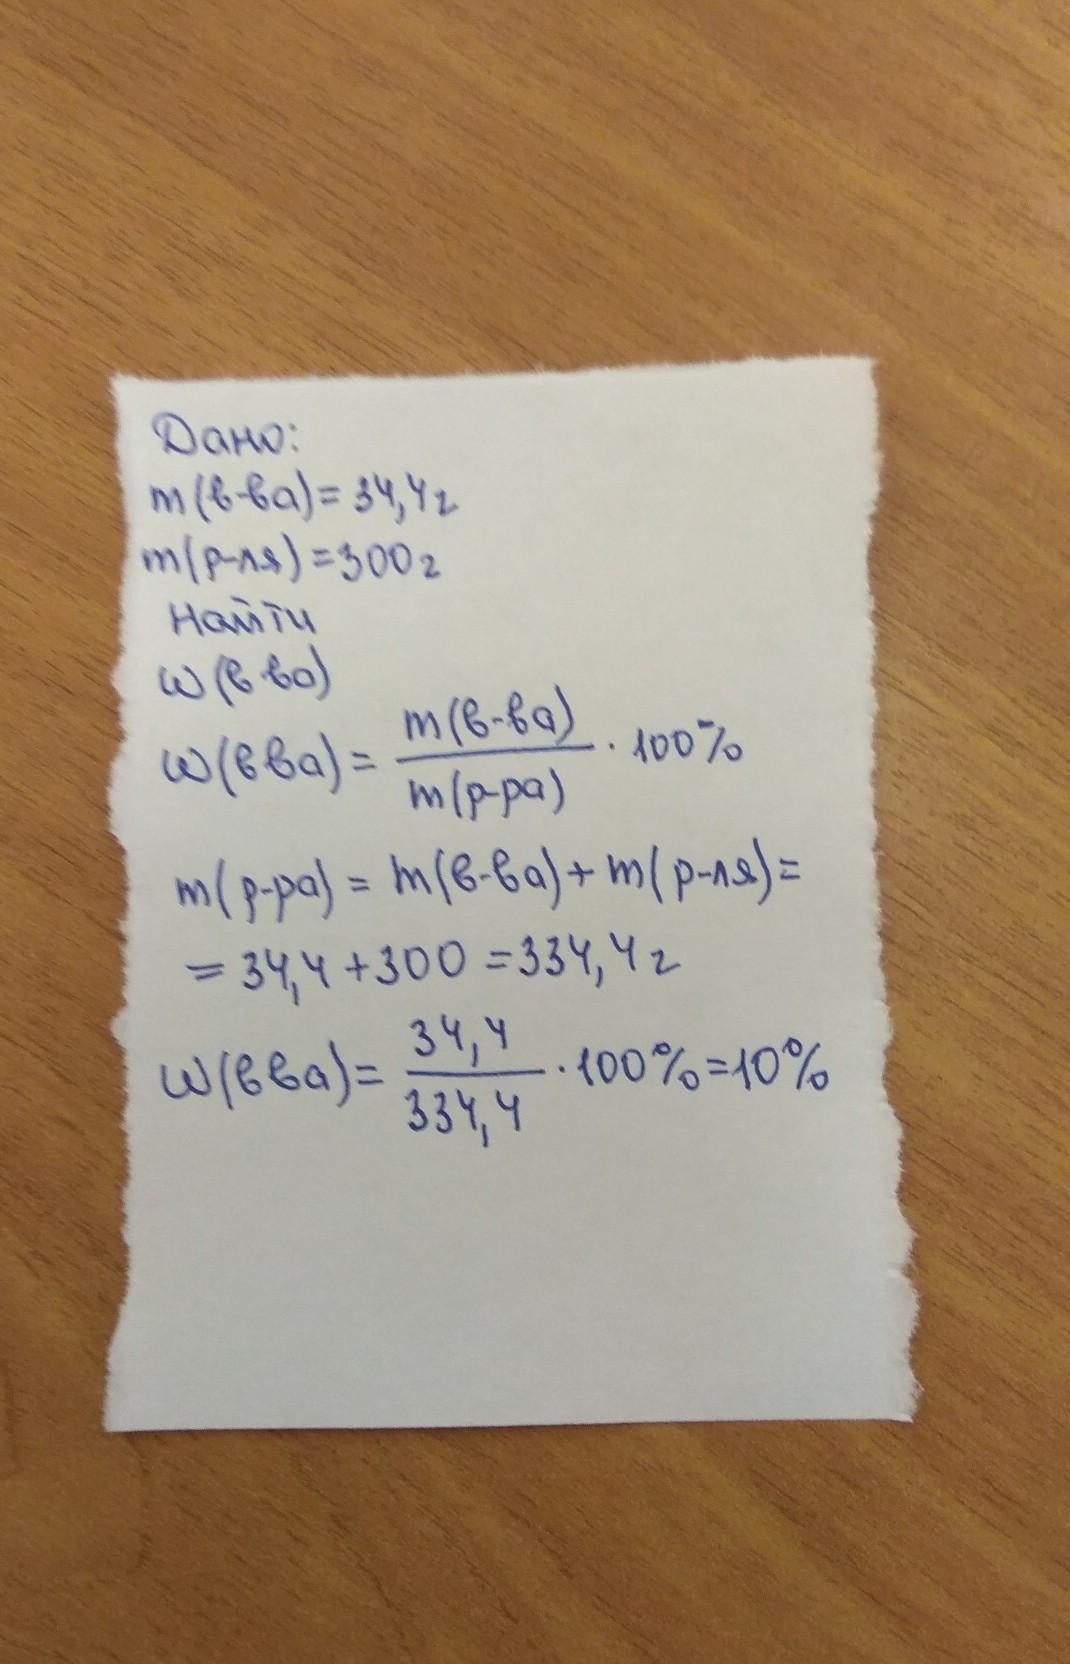 Дано:
m(в-ва)=34,4г
m(р-ля)=300г
Найти
w(в ва)
w(в ва)= m(в-ва)/m(р-ра) · 100%
m(р-ра) = m(в-ва)+m(р-ля)=
= 34,4+300 =334,4г
w(в ва)= 34,4/334,4 · 100%=10%